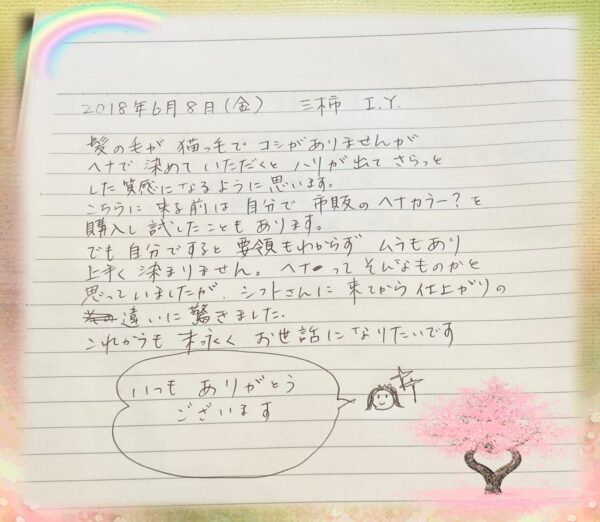 2018年6月8日(金) 三柿 I.Y.
髪の毛が 猫っ毛で コシがありませんが
ヘナで 染めて いただくと ハリが出て さらっと
した 質感になるように 思います。
こちらに 来る前は 自分で 市販の ヘナカラー?を
購入し 試したことも あります。
でも 自分ですると 要領もわからず ムラもあり
上手く 染まりません。 ヘナって そんなものかと
思っていましたが、シフトさんに 来てから 仕上がりの
違いに 驚きました。
これからも 末永く お世話に なりたいです
いつも ありがとう
ございます